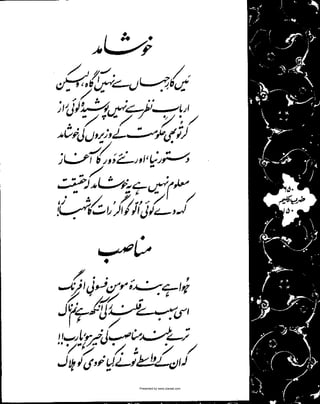 خوشامد
میں کارِ جہاں سے نہیں آگاہ، ولیکن
اربابِ نظر سے نہیں پوشیدہ کوئی راز
کر تو بھی حکومت کے وزیروں کی خوشامد
دستور نیا، اور نئے دَور کا آغاز
معلوم نہیں، ہے یہ خوشامد کہ حقیقت
کہہ دے کوئی اُلّو کو اگر رات کا شہباز!
مناصب
ہُوا ہے بندۂ مومن فسونیِ افرنگ
اسی سبب سے قلندر کی آنکھ ہے نم ناک
ترے بلند مناصب کی خیر ہو یارب!!
کہ ان کے واسطے تُو نے کِیا خودی کو ہلاک
۱۵۰
ضربِ کلیم
Presented by www.ziaraat.com